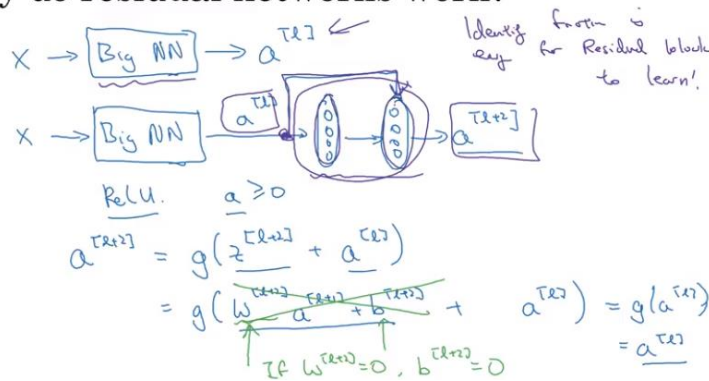 y do residual networks work?
X → Big NN → a^[l]
Identity function is
easy for Residual block
to learn!
X → Big NN → a^[l] → → a^[l+2]
ReLU. a ≥ 0
a^[l+2] = g(z^[l+2] + a^[l])
= g(W^[l+2] a^[l+1] + b^[l+2] + a^[l]) = g(a^[l])
= a^[l]
If W^[l+2] = 0, b^[l+2] = 0